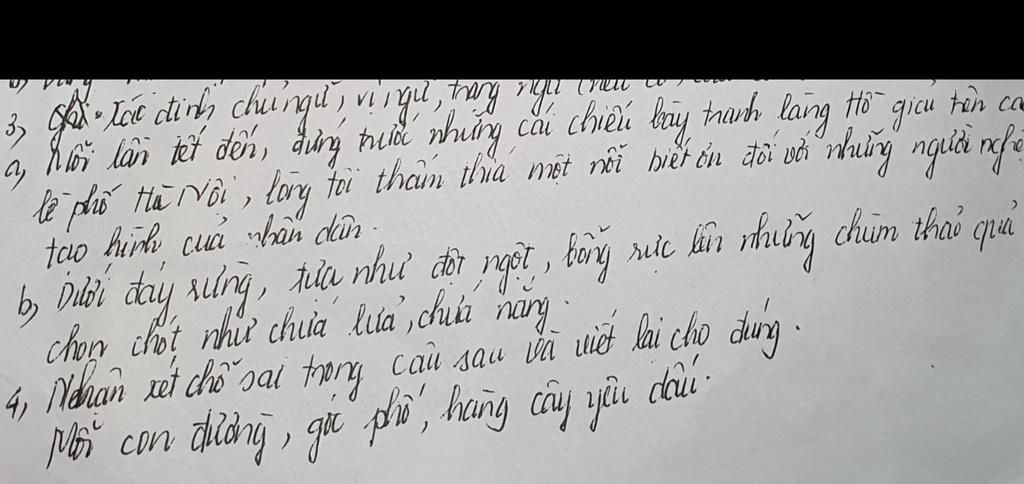 3, Xác định chủ ngữ, vị ngữ, trạng ngữ
a, Mỗi lần tết đến, đứng trước những cái chiếu bày tranh làng Hồ giải trên các
lề phố Hà Nội, lòng tôi thấm thía một nỗi biết ơn đối với những người nghệ
tạo hình của nhân dân.
b, Dưới đáy rừng, tựa như đột ngột, bỗng rực lên những chùm thảo quả
chon chót như chứa lửa, chứa nắng.
4, Nhận xét chỗ sai trong câu sau và viết lại cho đúng.
Mỗi con đường, góc phố, hàng cây yêu dấu.